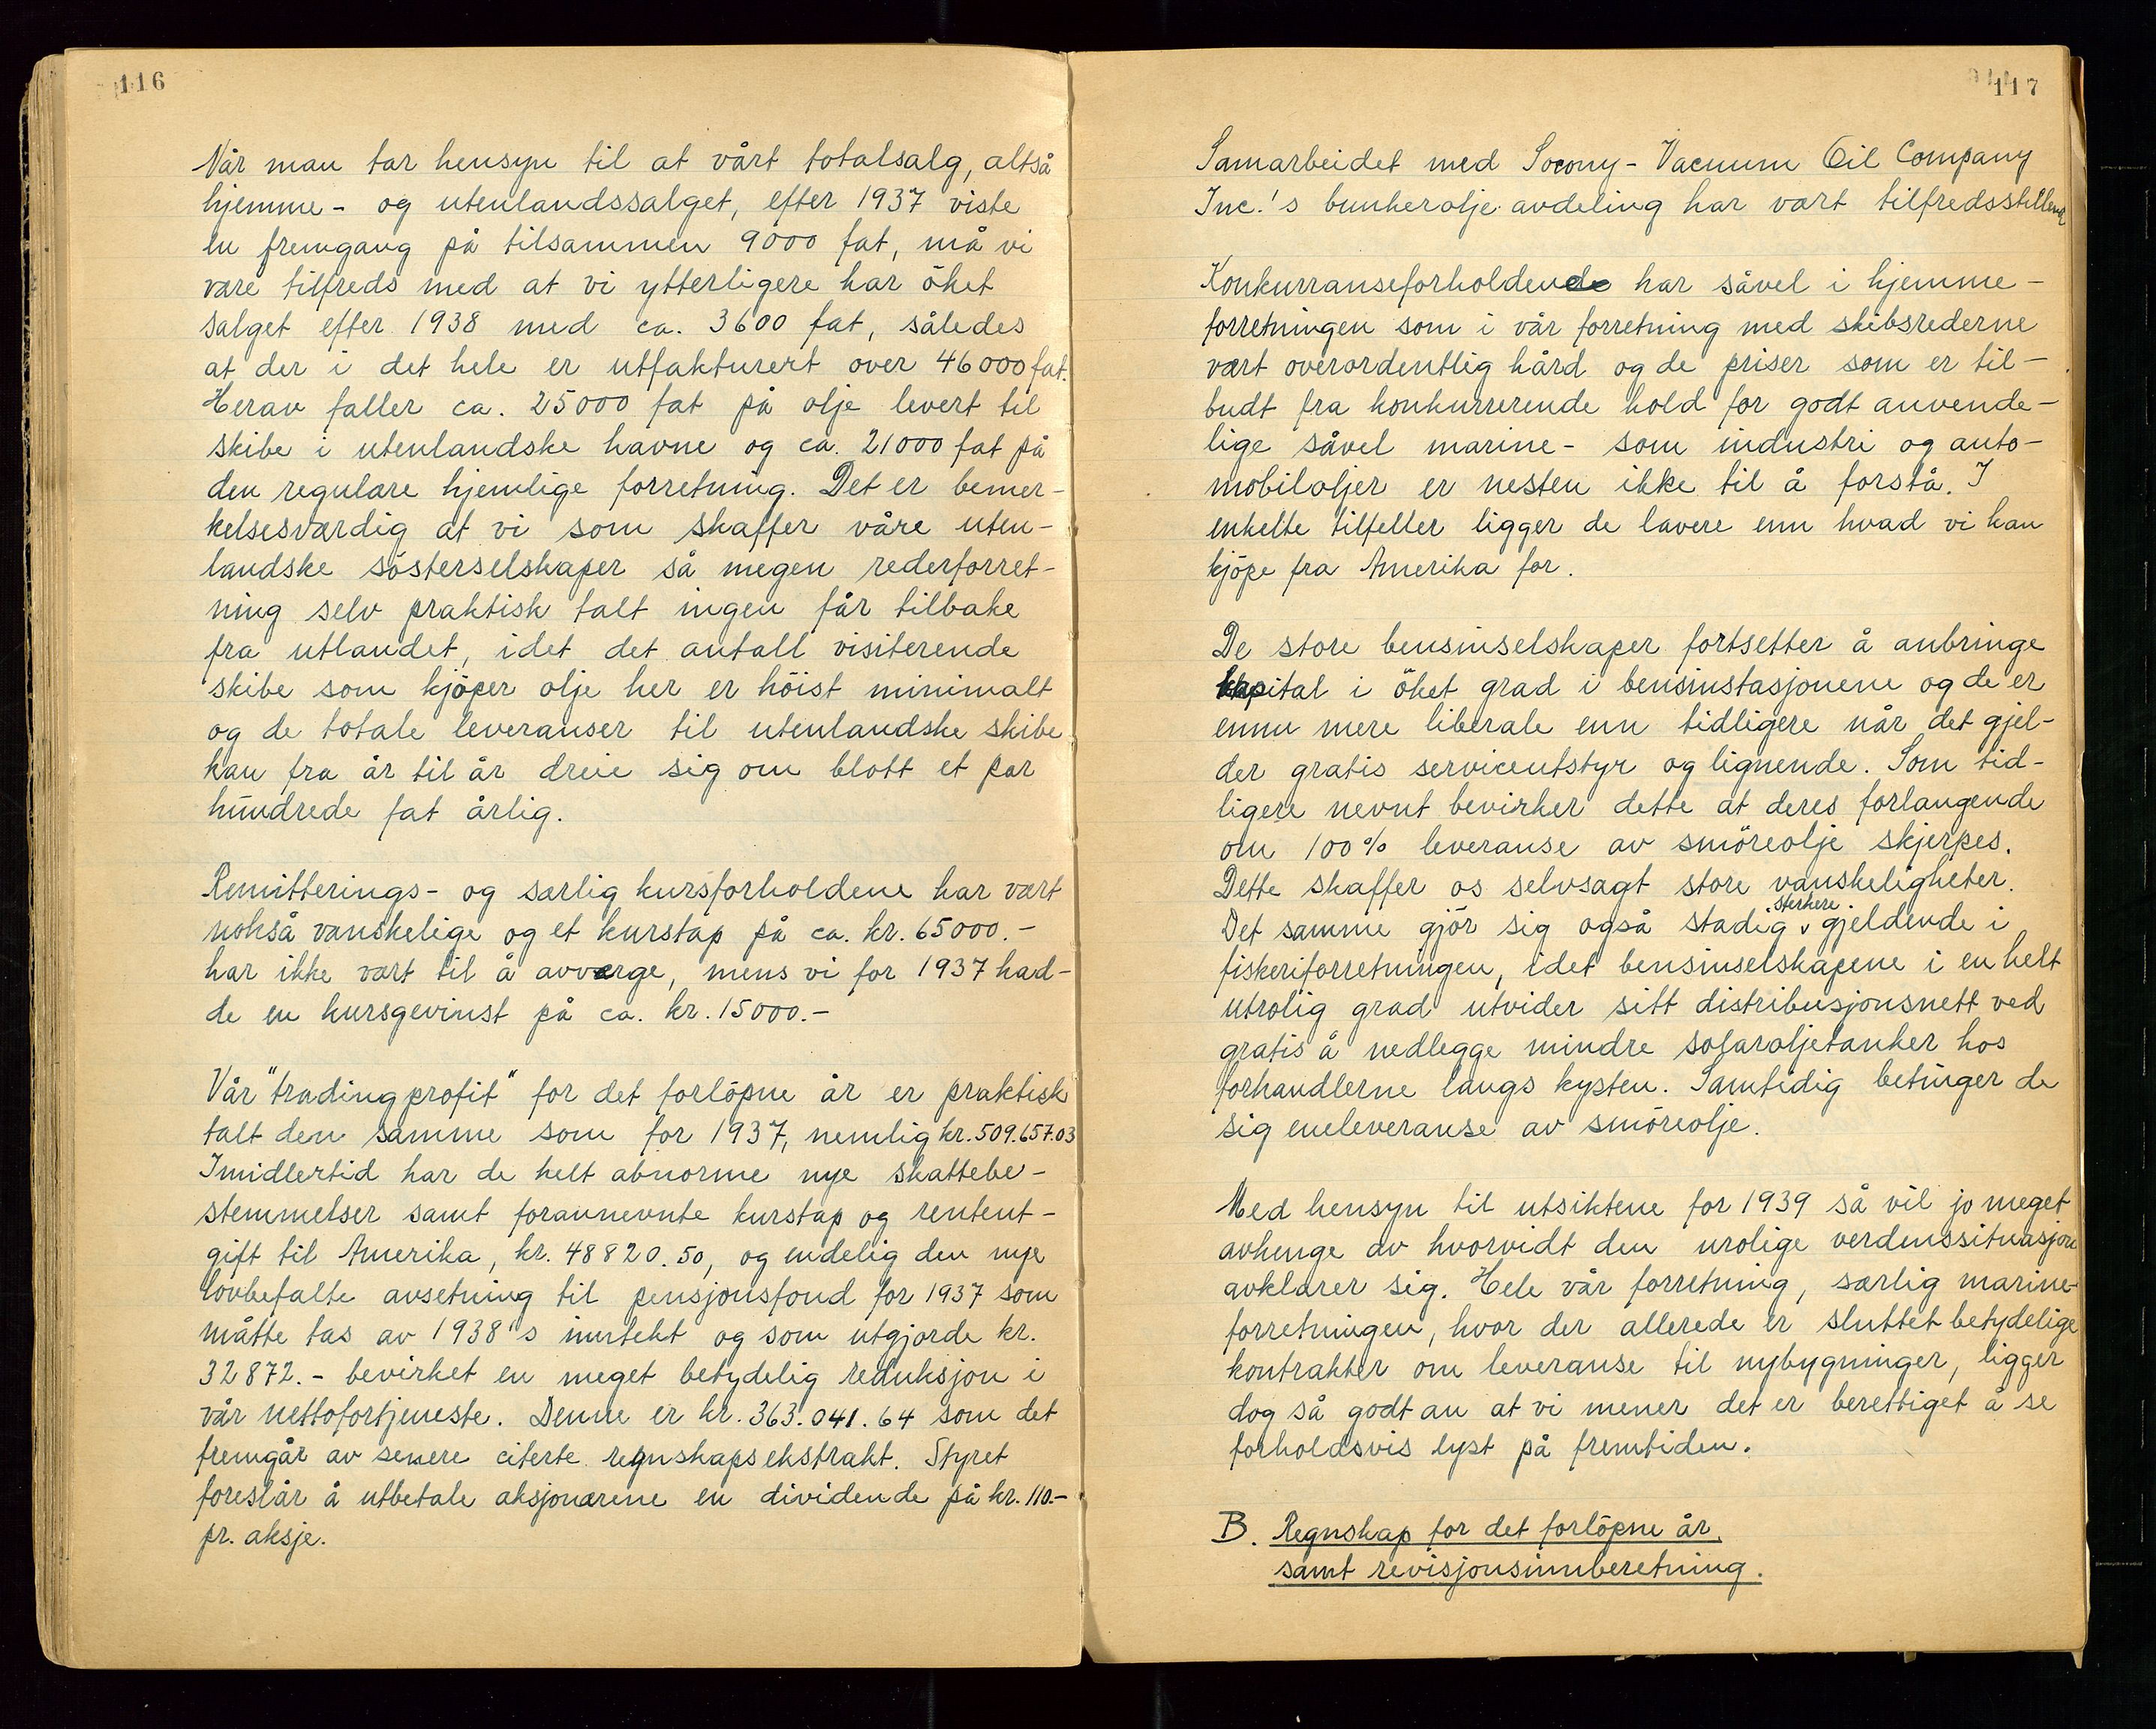 116
Når man tar hensyn til at vårt totalsalg, altså
hjemme- og utenlandssalget, efter 1937 viste
en fremgang på tilsammen 9000 fat, må vi
være tilfreds med at vi ytterligere har öket
salget efter 1938 med ca. 3600 fat, således
at der i det hele er utfakturert over 46000 fat.
Herav faller ca. 25000 fat på olje levert til
skibe i utenlandske havne og ca. 21000 fat på
den regulære hjemlige forretning. Det er bemer-
kelsesværdig at vi som skaffer våre uten-
landske sösterselskaper så megen rederforret-
ning selv praktisk talt ingen får tilbake
fra utlandet, idet det antall visiterende
skibe som kjöper olje her er höist minimalt
og de totale leveranser til utenlandske skibe
kan fra år til år dreie sig om blott et par
hundrede fat årlig.
Remitterings- og særlig kursforholdene har vært
nokså vanskelige og et kurstap på ca. kr. 65000.-
har ikke vært til å avværge, mens vi for 1937 had-
de en kursgevinst på ca. kr. 15000.-
Vår "trading profit" for det forlöpne år er praktisk
talt den samme som for 1937, nemlig kr. 509.657.03
Imidlertid har de helt abnorme nye skattebe-
stemmelser samt forannevnte kurstap og rentent-
gift til Amerika, kr. 48820.50, og endelig den nye
lovbefalte avsetning til pensjonsfond for 1937 som
måtte tas av 1938's inntekt og som utgjorde kr.
32872.- bevirket en meget betydelig reduksjon i
vår nettofortjeneste. Denne er kr. 363.041.64 som det
fremgår av senere citerte regnskapsekstrakt. Styret
foreslår å utbetale aksjonærene en dividende på kr. 110.-
pr. aksje.
117
Samarbeidet med Socony-Vacuum Oil Company
Inc.'s bunkerolje avdeling har vært tilfredsstillende
Konkurranseforholdene har såvel i hjemme-
forretningen som i vår forretning med skibsrederne
vært overordentlig hård og de priser som er til-
budt fra konkurrerende hold for godt anvende-
lige såvel marine- som industri og auto-
mobiloljer er nesten ikke til å forstå. I
enkelte tilfeller ligger de lavere enn hvad vi kan
kjöpe fra Amerika for.
De store bensinselskaper fortsetter å anbringe
kapital i öket grad i bensinstasjonene og de er
ennu mere liberale enn tidligere når det gjel-
der gratis serviceutstyr og lignende. Som tid-
ligere nevnt bevirker dette at deres forlangende
om 100% leveranse av smöreolje skjerpes.
Dette skaffer os selvsagt store vanskeligheter.
Det samme gjör sig også stadig sterkere gjeldende i
fiskeriforretningen, idet bensinselskapene i en helt
utrolig grad utvider sitt distribusjonsnett ved
gratis å nedlegge mindre solaroljetanker hos
forhandlerne langs kysten. Samtidig betinger de
sig eneleveranse av smöreolje.
Med hensyn til utsiktene for 1939 så vil jo meget
avhenge av hvorvidt den urolige verdenssituasjon
avklarer sig. Hele vår forretning, særlig marine-
forretningen, hvor der allerede er sluttet betydelige
kontrakter om leveranse til nybygninger, ligger
dog så godt an at vi mener det er berettiget å se
forholdsvis lyst på fremtiden.
B. Regnskap for det forlöpne år,
samt revisjonsinnberetning.